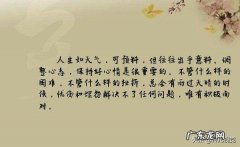 人生如天气，可预料，但往往出乎意料，调
整心态，保持好心情是很重要的，不管什么样的
困难，不管什么样的挫折，总会有雨过天晴的时
候，忧伤和烦恼解决不了任何问题，唯有积极面
对。
广东龙网